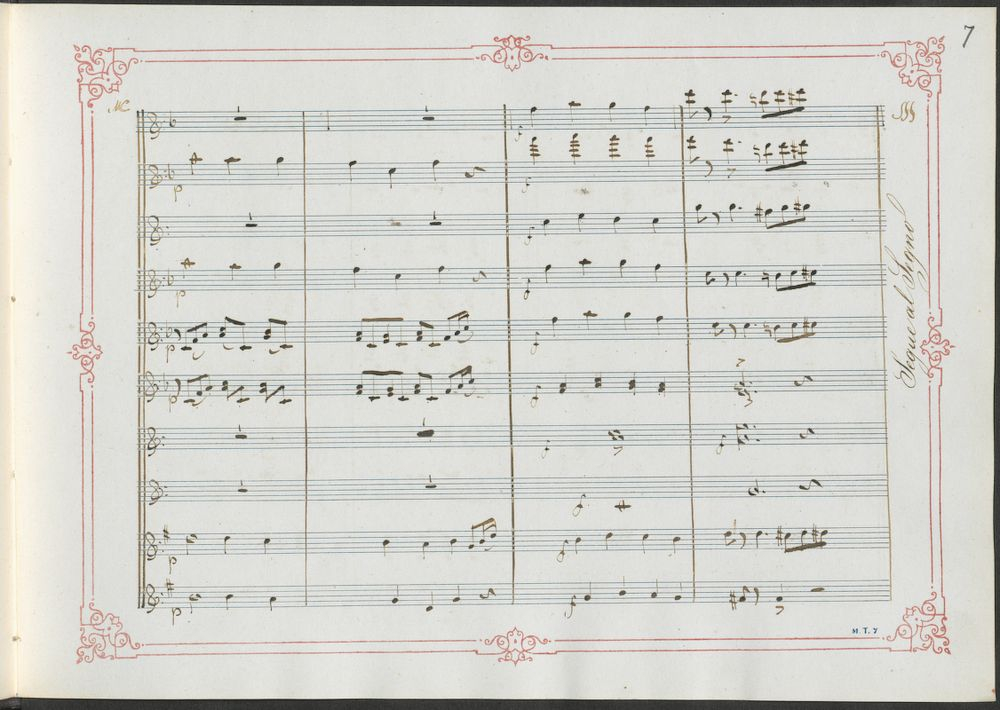 7
p
f
f
p
f
f
p
f
p
f
p
f
f
f
f
p
f
p
f
Segue al Segno
M. T. Y